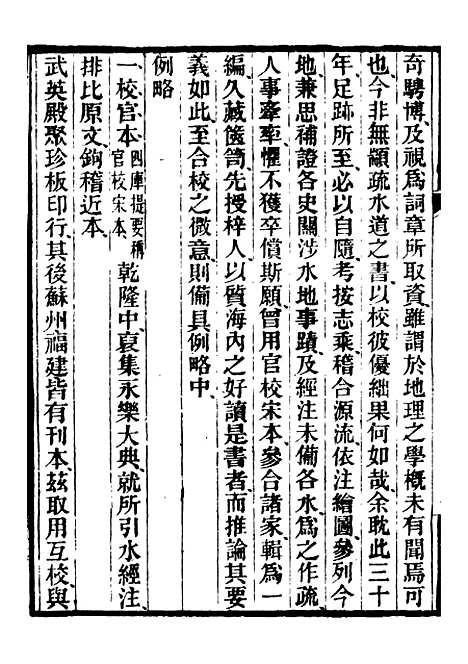 奇騁博及視爲詞章所取資雖謂於地理之學槪未有聞焉可
也今非無顓疏水道之書以校彼優絀果何如哉余耽此三十
年足跡所至必以自隨考按志乘稽合源流依注繪圖參列今
地兼思補證各史關涉水地事蹟及經注未備各水爲之作疏
人事牽牽懼不獲卒償斯願曾用官校宋本參合諸家輯爲一
編久藏篋笥先授梓人以質海内之好讀是書者而推論其要
義如此至合校之微意則備具例略中
例略
一校官本四庫提要稱官校宋本乾隆中裒集永樂大典就所引水經注
排比原文鉤稽近本
武英殿聚珍板印行其後蘇州福建皆有刊本茲取用互校與